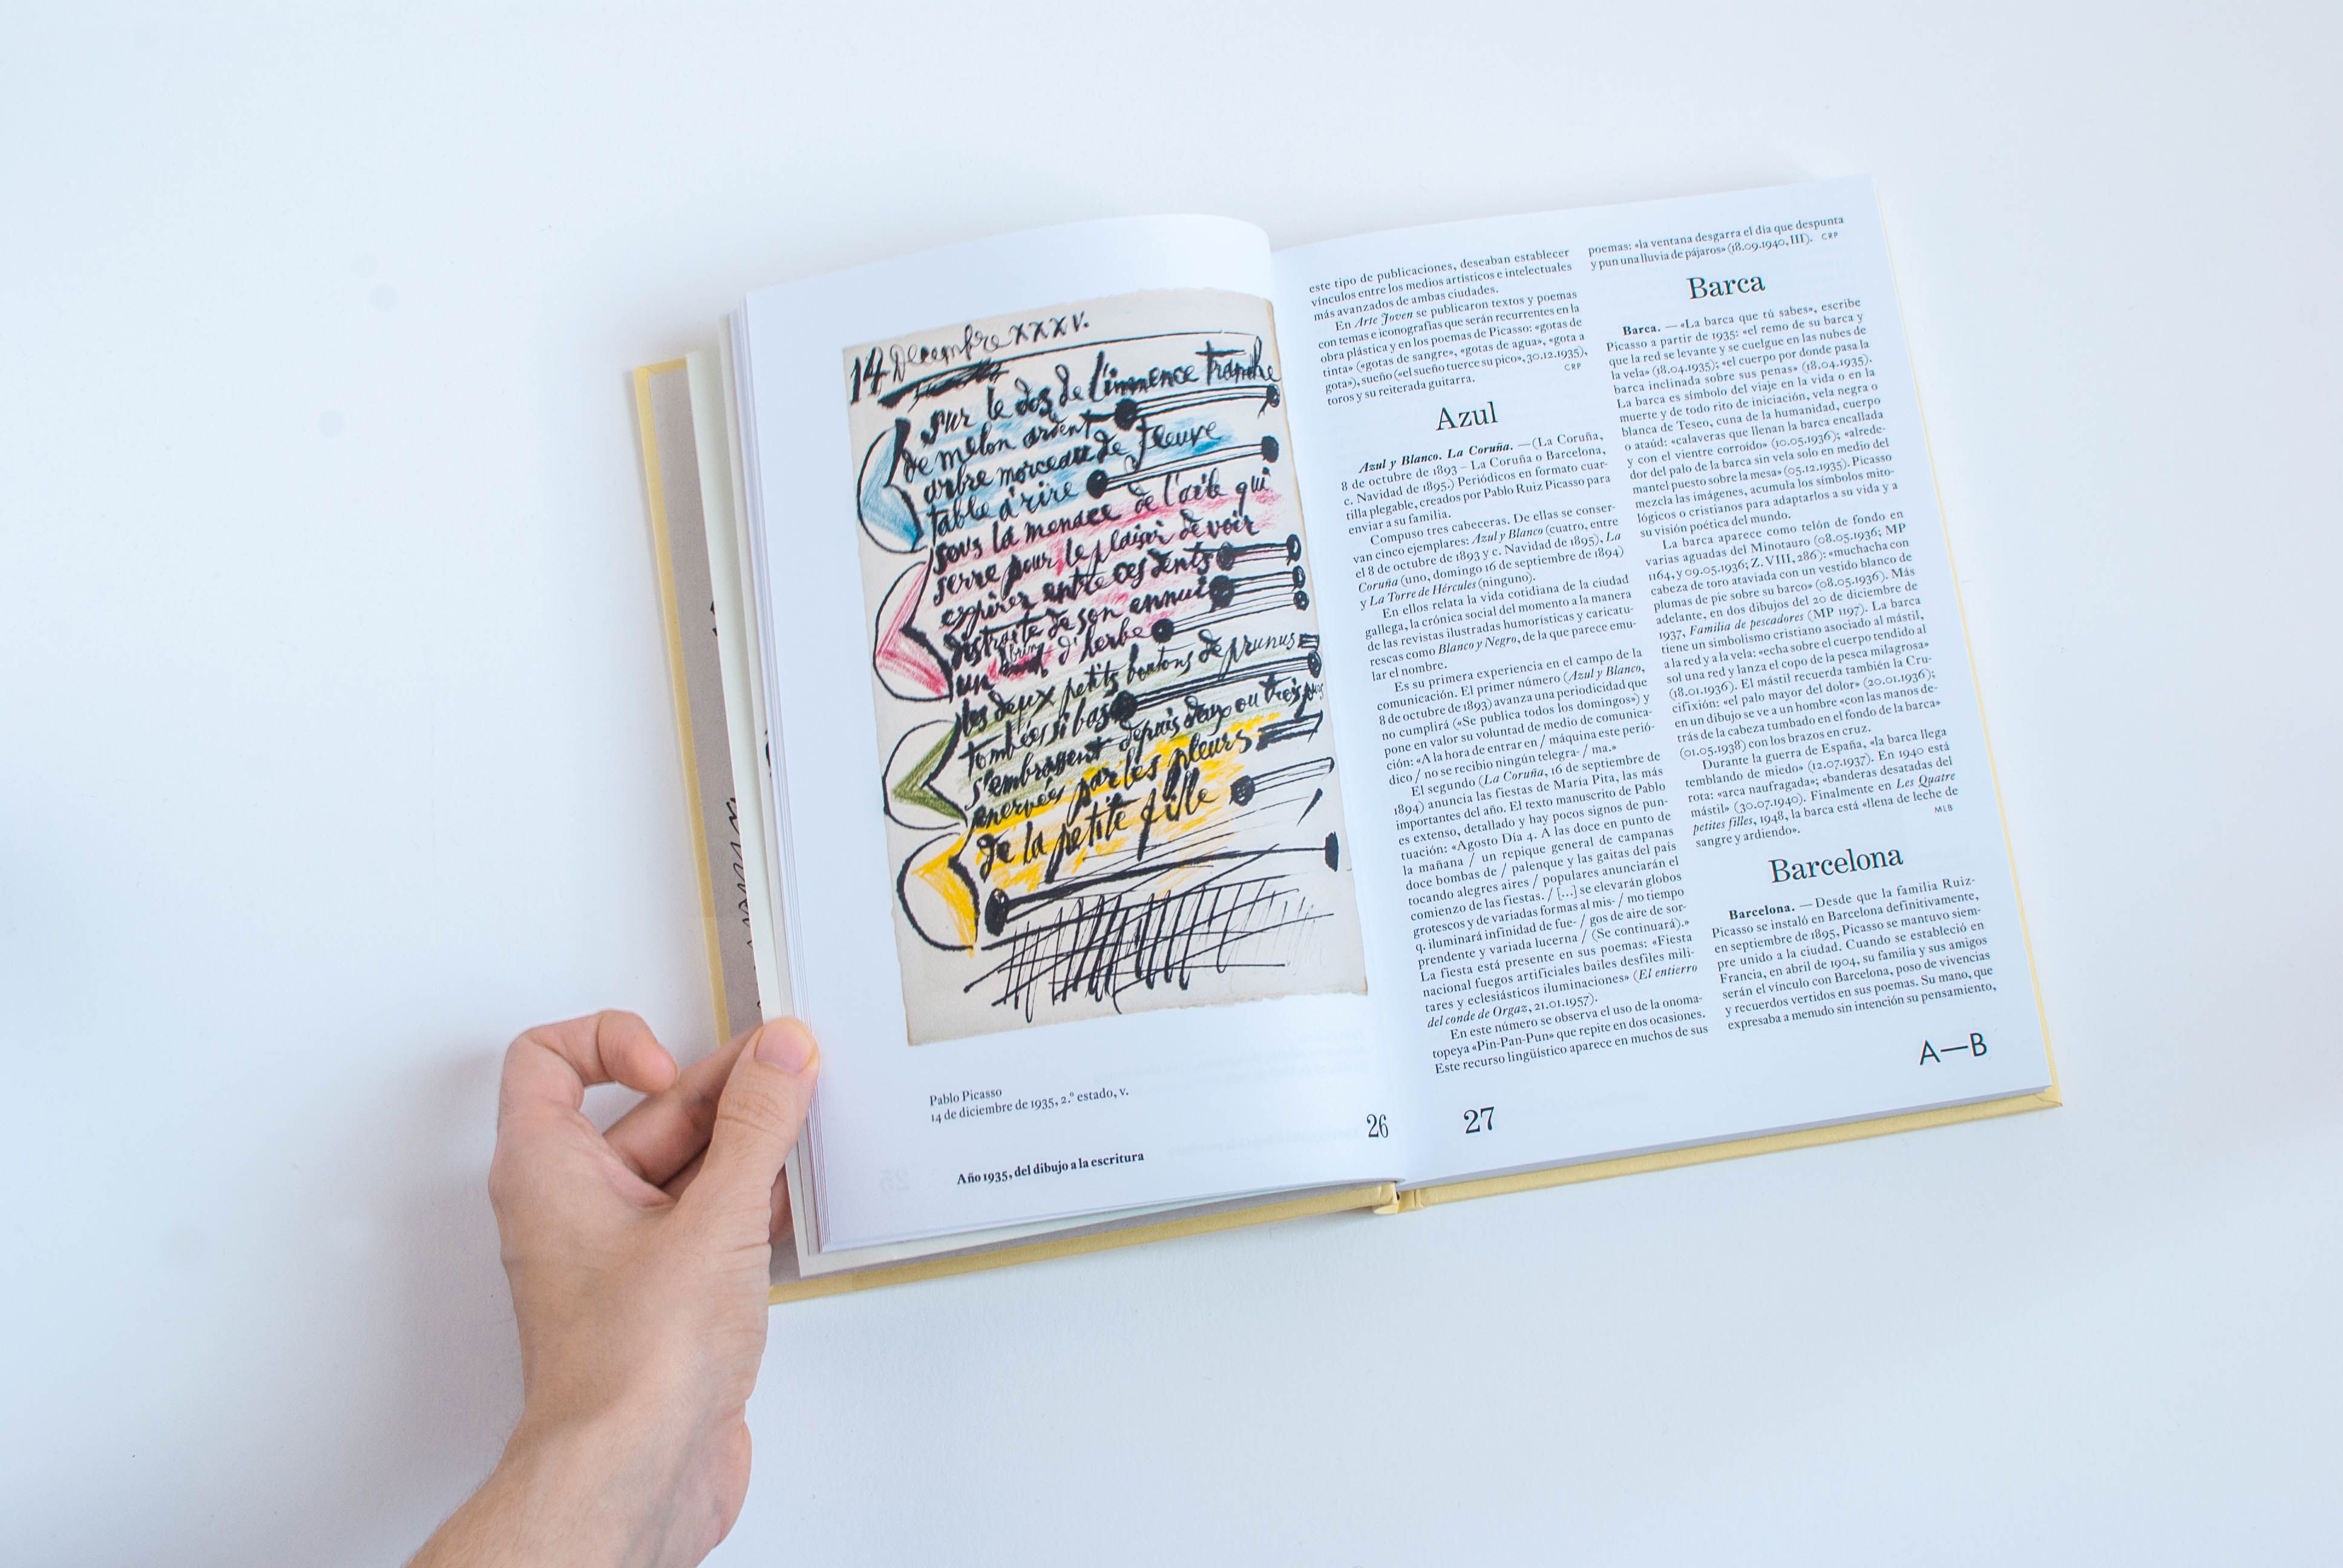 14 Decembre XXXV.
sur le dos de l'immence tranche
de melon ardent
arbre morceau de fleuve
table à rire
sous la menace de l'aile qui
serre pour le plaisir de voir
expirer entre ces dents
distraite de son ennui
un brin d'herbe
les deux petits boutons de prunus
tombées si bas
s'embrassent depuis deux ou trois
enervées par les pleurs
de la petite fille
Pablo Picasso
14 de diciembre de 1935, 2.º estado, v.
Año 1935, del dibujo a la escritura
26
este tipo de publicaciones, deseaban establecer
vínculos entre los medios artísticos e intelectuales
más avanzados de ambas ciudades.
En Arte Joven se publicaron textos y poemas
con temas e iconografías que serán recurrentes en la
obra plástica y en los poemas de Picasso: «gotas de
tinta» («gotas de sangre», «gotas de agua», «gota a
gota»), sueño («el sueño tuerce su pico», 30.12.1935),
toros y su reiterada guitarra. CRP
Azul
Azul y Blanco. La Coruña. — (La Coruña,
8 de octubre de 1893 – La Coruña o Barcelona,
c. Navidad de 1895.) Periódicos en formato cuar-
tilla plegable, creados por Pablo Ruiz Picasso para
enviar a su familia.
Compuso tres cabeceras. De ellas se conser-
van cinco ejemplares: Azul y Blanco (cuatro, entre
el 8 de octubre de 1893 y c. Navidad de 1895), La
Coruña (uno, domingo 16 de septiembre de 1894)
y La Torre de Hércules (ninguno).
En ellos relata la vida cotidiana de la ciudad
gallega, la crónica social del momento a la manera
de las revistas ilustradas humorísticas y caricatu-
rescas como Blanco y Negro, de la que parece emu-
lar el nombre.
Es su primera experiencia en el campo de la
comunicación. El primer número (Azul y Blanco,
8 de octubre de 1893) avanza una periodicidad que
no cumplirá («Se publica todos los domingos») y
pone en valor su voluntad de medio de comunica-
ción: «A la hora de entrar en / máquina este perió-
dico / no se recibio ningún telegra- / ma.»
El segundo (La Coruña, 16 de septiembre de
1894) anuncia las fiestas de María Pita, las más
importantes del año. El texto manuscrito de Pablo
es extenso, detallado y hay pocos signos de pun-
tuación: «Agosto Día 4. A las doce en punto de
la mañana / un repique general de campanas
doce bombas de / palenque y las gaitas del país
tocando alegres aires / populares anunciarán el
comienzo de las fiestas. / [...] se elevarán globos
grotescos y de variadas formas al mis- / mo tiempo
q. iluminará infinidad de fue- / gos de aire de sor-
prendente y variada lucerna / (Se continuará).»
La fiesta está presente en sus poemas: «Fiesta
nacional fuegos artificiales bailes desfiles mili-
tares y eclesiásticos iluminaciones» (El entierro
del conde de Orgaz, 21.01.1957).
En este número se observa el uso de la onoma-
topeya «Pin-Pan-Pun» que repite en dos ocasiones.
Este recurso lingüístico aparece en muchos de sus
poemas: «la ventana desgarra el día que despunta
y pun una lluvia de pájaros» (18.09.1940, III). CRP
Barca
Barca. — «La barca que tú sabes», escribe
Picasso a partir de 1935: «el remo de su barca y
que la red se levante y se cuelgue en las nubes de
la vela» (18.04.1935); «el cuerpo por donde pasa la
barca inclinada sobre sus penas» (18.04.1935).
La barca es símbolo del viaje en la vida o en la
muerte y de todo rito de iniciación, vela negra o
blanca de Teseo, cuna de la humanidad, cuerpo
o ataúd: «calaveras que llenan la barca encallada
y con el vientre corroído» (10.05.1936); «alrede-
dor del palo de la barca sin vela solo en medio del
mantel puesto sobre la mesa» (05.12.1935). Picasso
mezcla las imágenes, acumula los símbolos mito-
lógicos o cristianos para adaptarlos a su vida y a
su visión poética del mundo.
La barca aparece como telón de fondo en
varias aguadas del Minotauro (08.05.1936; MP
1164, y 09.05.1936; Z. VIII, 286): «muchacha con
cabeza de toro ataviada con un vestido blanco de
plumas de pie sobre su barco» (08.05.1936). Más
adelante, en dos dibujos del 20 de diciembre de
1937, Familia de pescadores (MP 1197). La barca
tiene un simbolismo cristiano asociado al mástil,
a la red y a la vela: «echa sobre el cuerpo tendido al
sol una red y lanza el copo de la pesca milagrosa»
(18.01.1936). El mástil recuerda también la Cru-
cifixión: «el palo mayor del dolor» (20.01.1936);
en un dibujo se ve a un hombre «con las manos de-
trás de la cabeza tumbado en el fondo de la barca»
(01.05.1938) con los brazos en cruz.
Durante la guerra de España, «la barca llega
temblando de miedo» (12.07.1937). En 1940 está
rota: «arca naufragada»; «banderas desatadas del
mástil» (30.07.1940). Finalmente en Les Quatre
petites filles, 1948, la barca está «llena de leche de
sangre y ardiendo». MLB
Barcelona
Barcelona. — Desde que la familia Ruiz-
Picasso se instaló en Barcelona definitivamente,
en septiembre de 1895, Picasso se mantuvo siem-
pre unido a la ciudad. Cuando se estableció en
Francia, en abril de 1904, su familia y sus amigos
serán el vínculo con Barcelona, poso de vivencias
y recuerdos vertidos en sus poemas. Su mano, que
expresaba a menudo sin intención su pensamiento,
A—B
27